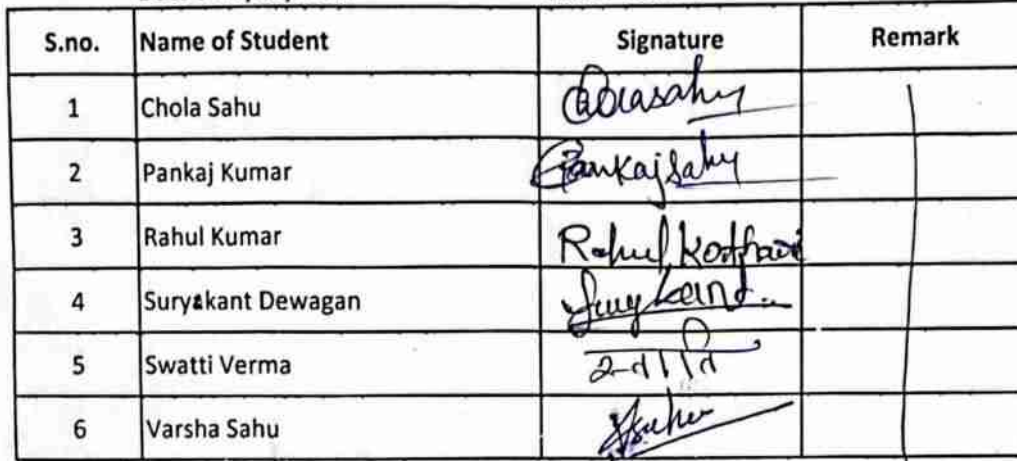 S.no. Name of Student Signature Remark
1 Chola Sahu Cholasahu
2 Pankaj Kumar Pankaj Sahu
3 Rahul Kumar Rahul Kothari
4 Suryakant Dewagan Surykant
5 Swatti Verma स्वाति
6 Varsha Sahu Vsahu